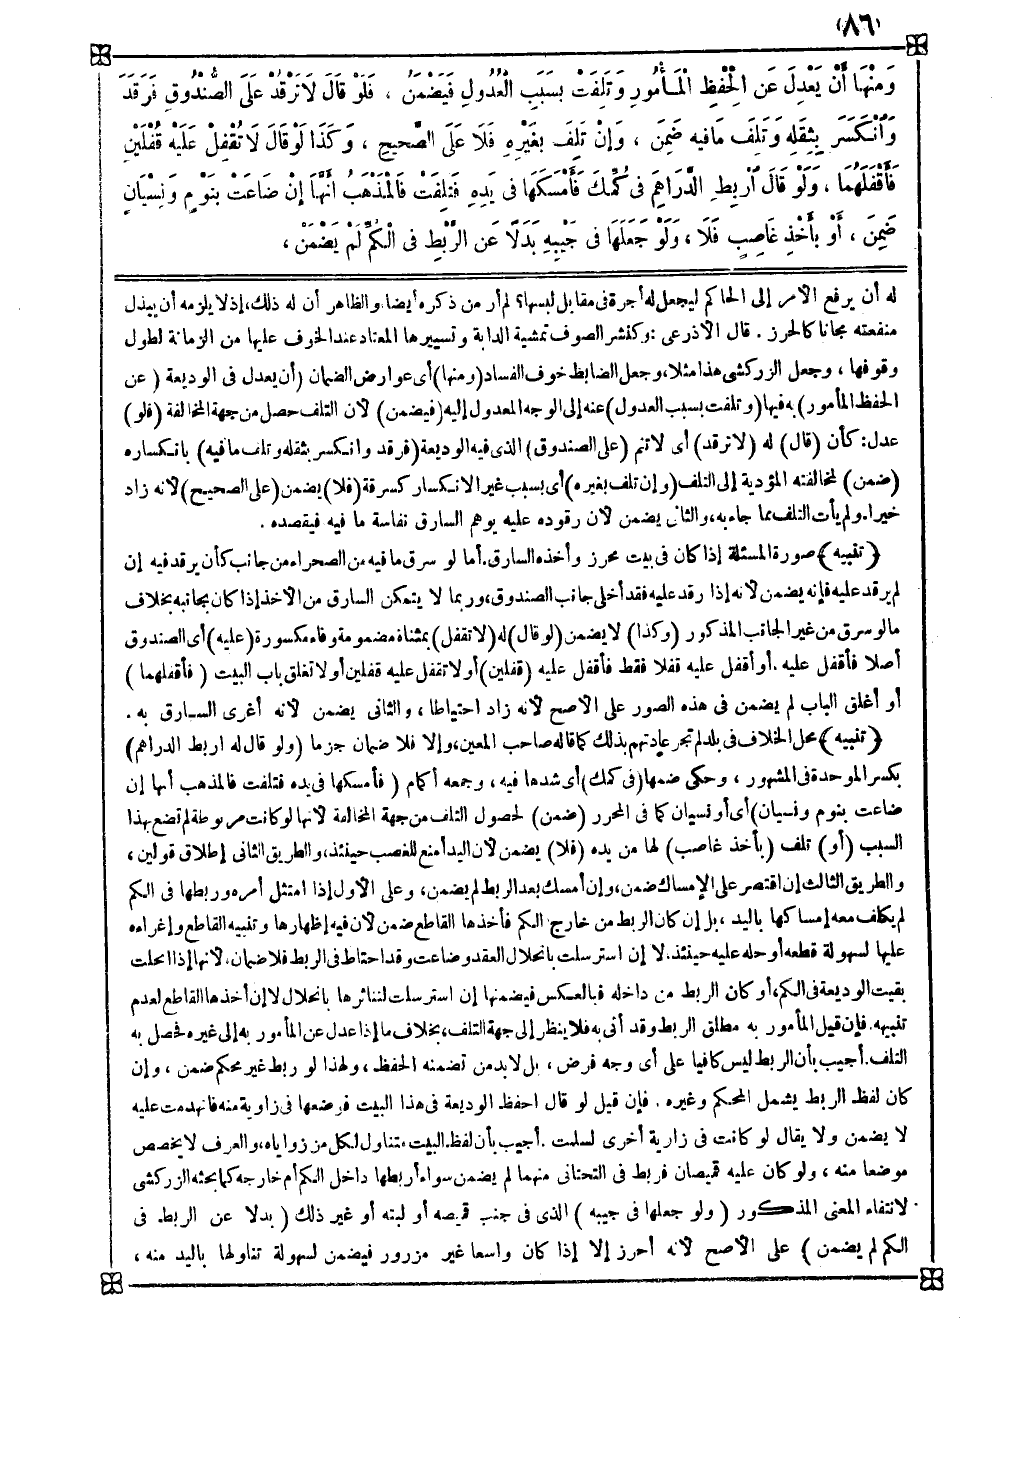 (٨٦)
وَمِنْهَا أَنْ يَعْدِلَ عَنِ الْحِفْظِ الْمَأْمُورِ وَتَلِفَتْ بِسَبَبِ الْعُدُولِ فَيَضْمَنُ ، فَلَوْ قَالَ لَا تَرْقُدْ عَلَى الصُّنْدُوقِ فَرَقَدَ
وَانْكَسَرَ بِثِقَلِهِ وَتَلِفَ مَافِيهِ ضَمِنَ ، وَإِنْ تَلِفَ بِغَيْرِهِ فَلَا عَلَى الصَّحِيحِ ، وَكَذَا لَوْ قَالَ لَا تُقْفِلْ عَلَيْهِ قُفْلَيْنِ
فَأَقْفَلَهُمَا ، وَلَوْ قَالَ ارْبِطِ الدَّرَاهِمَ فِى كُمِّكَ فَأَمْسَكَهَا فِى يَدِهِ فَتَلِفَتْ فَالْمَذْهَبُ أَنَّهَا إِنْ ضَاعَتْ بِنَوْمٍ وَنِسْيَانٍ
ضَمِنَ ، أَوْ بِأَخْذِ غَاصِبٍ فَلَا ، وَلَوْ جَعَلَهَا فِى جَيْبِهِ بَدَلًا عَنِ الرَّبْطِ فِى الْكُمِّ لَمْ يَضْمَنْ ،
له أن يرفع الأمر إلى الحاكم ليجعل له أجرة فى مقابل لبسها؟ لم أر من ذكره أيضا. والظاهر أن له ذلك، إذ لا يلزمه أن يبذل
منفعته مجانا كالحرز . قال الأذرعى : وكنشر الصوف تمشية الدابة وتسييرها المعتاد عند الخوف عليها من الزمانة لطول
وقوفها ، وجعل الزركشى هذا مثلا، وجعل الضابط خوف الفساد (ومنها) أى عوارض الضمان (أن يعدل فى الوديعة (عن
الحفظ المأمور) به فيها (وتلفت بسبب العدول) عنه إلى الوجه المعدول إليه (فيضمن) لأن التلف حصل من جهة المخالفة (فلو)
عدل: كأن (قال) له (لا ترقد) أى لا تنم (على الصندوق) الذى فيه الوديعة (فرقد وانكسر بثقله وتلف مافيه) بانكساره
(ضمن) لمخالفته المؤدية إلى التلف (وإن تلف بغيره) أى بسبب غير الانكسار كسرقة (فلا) يضمن (على الصحيح) لأنه زاد
خيرا. ولم يأت التلف بما جاء به، والثانى يضمن لأن رقوده عليه يوهم السارق نفاسة ما فيه فيقصده .
﴿ تنبيه ﴾ صورة المسئلة إذا كان فى بيت محرز وأخذه السارق. أما لو سرق ما فيه من الصحراء من جانب كأن يرقد فيه إن
لم يرقد عليه فإنه يضمن لأنه إذا رقد عليه فقد أخلى جانب الصندوق، وربما لا يتمكن السارق من الأخذ إذا كان بجانبه بخلاف
مالو سرق من غير الجانب المذكور (وكذا) لا يضمن (لو قال) له (لا تقفل) بمثناة مضمومة وفاء مكسورة (عليه) أى الصندوق
أصلا فأقفل عليه . أو أقفل عليه قفلا فقط فأقفل عليه (قفلين) أو لا تقفل عليه قفلين أو لا تغلق باب البيت ( فأقفلهما )
أو أغلق الباب لم يضمن فى هذه الصور على الأصح لأنه زاد احتياطا ، والثانى يضمن لأنه أغرى السارق به .
﴿ تنبيه ﴾ محل الخلاف فى بلد لم تجر عادتهم بذلك كما قاله صاحب المعين، وإلا فلا ضمان جزما (ولو قال له اربط الدراهم)
بكسر الموحدة فى المشهور ، وحكى ضمها (فى كمك) أى شدها فيه ، وجمعه أكمام ( فأمسكها فى يده فتلفت فالمذهب أنها إن
ضاعت بنوم ونسيان) أى أو نسيان كما فى المحرر (ضمن) لحصول التلف من جهة المخالفة لأنها لو كانت مربوطة لم تضع بهذا
السبب (أو) تلف (بأخذ غاصب) لها من يده (فلا) يضمن لأن اليد أمنع للغصب حينئذ، والطريق الثانى إطلاق قولين ،
والطريق الثالث إن اقتصر على الإمساك ضمن، وإن أمسك بعد الربط لم يضمن، وعلى الأول إذا امتثل أمره وربطها فى الكم
لم يكلف معه إمساكها باليد ، بل إن كان الربط من خارج الكم فأخذها القاطع ضمن لأن فيه إظهارها وتنبيه القاطع وإغراءه
عليها لسهولة قطعه أو حله عليه حينئذ. لا إن استرسلت بانحلال العقد وضاعت وقد احتاط فى الربط فلا ضمان، لأنها إذا انحلت
بقيت الوديعة فى الكم، أو كان الربط من داخله فبالعكس فيضمنها إن استرسلت لتناثرها بانحلال لا إن أخذها القاطع لعدم
تنبيهه. فإن قيل المأمور به مطلق الربط وقد أتى به فلا ينظر إلى جهة التلف، بخلاف ما إذا عدل عن المأمور به إلى غيره فحصل به
التلف. أجيب بأن الربط ليس كافيا على أى وجه فرض ، بل لابد من تضمنه الحفظ ، ولهذا لو ربط غير محكم ضمن ، وإن
كان لفظ الربط يشمل المحكم وغيره . فإن قيل لو قال احفظ الوديعة فى هذا البيت فوضعها فى زاوية منه فانهدمت عليه
لا يضمن ولا يقال لو كانت فى زاوية أخرى لسلمت . أجيب بأن لفظ البيت متناول لكل من زواياه، والعرف لا يخصص
موضعا منه ، ولو كان عليه قميصان فربط فى التحتانى منهما لم يضمن سواء أربطها داخل الكم أم خارجه كما بحثه الزركشى
لانتفاء المعنى المذكور ( ولو جعلها فى جيبه ) الذى فى جنب قميصه أو لبته أو غير ذلك ( بدلا عن الربط فى
الكم لم يضمن ) على الأصح لأنه أحرز إلا إذا كان واسعا غير مزرور فيضمن لسهولة تناولها باليد منه ،